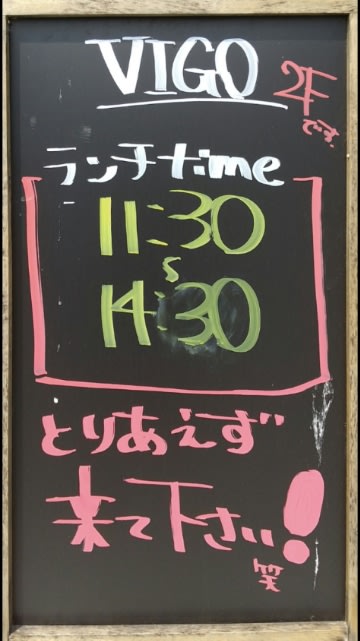 VIGO
2Fです。
ランチtime
11:30
〜
14:30
とりあえず
来て下さい!
笑